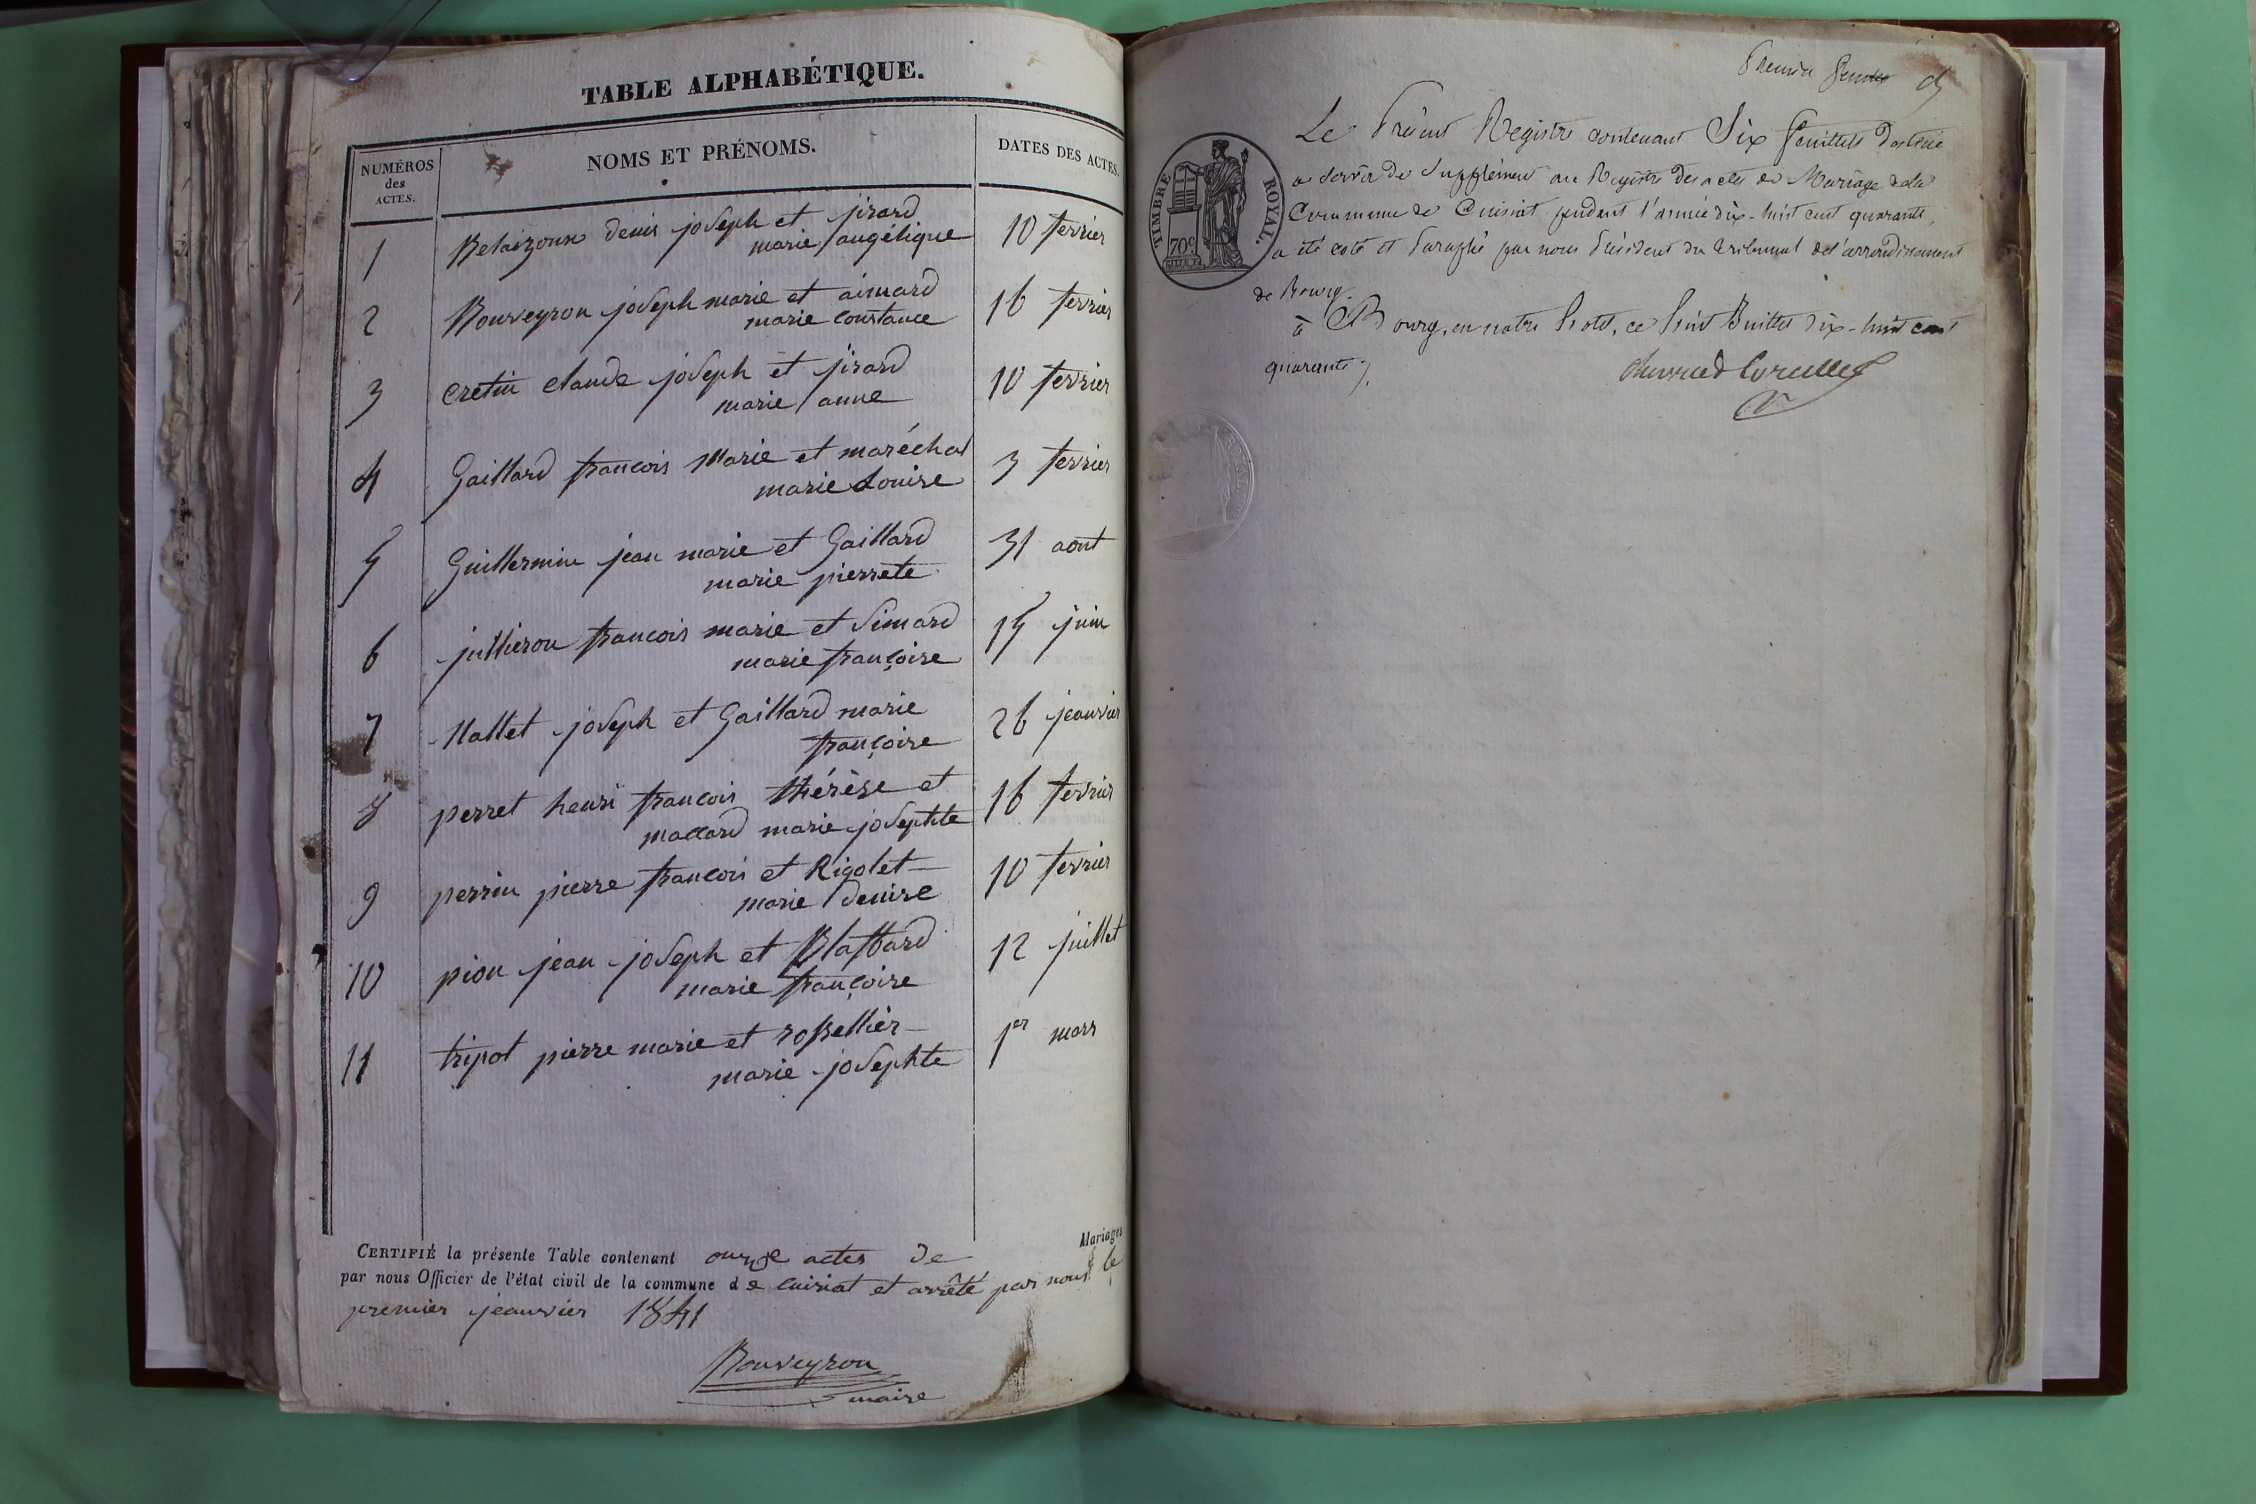 TABLE ALPHABÉTIQUE.
NUMÉROS
des
ACTES.
NOMS ET PRÉNOMS.
DATES DES ACTES.
1 Belaizoux denis joseph et jirard 10 fevrier
marie angélique
2 Bouveyron joseph marie et aimard 16 fevrier
marie constance
3 cretin claude joseph et jirard 10 fevrier
marie anne
4 Gaillard francois Marie et maréchal 3 fevrier
marie Louise
5 Guillermin jean marie et Gaillard 31 aout
marie pierrete
6 jullieron francois marie et Simard 15 juin
marie françoise
7 Mallet joseph et Gaillard marie 26 jeanvier
françoise
8 perret henri francois thérèse et 16 fevrier
maccard marie josephte
9 perrin pierre francois et Rigolet 10 fevrier
marie denise
10 pion jean joseph et Blaffard 12 juillet
marie françoise
11 tripot pierre marie et rossellier 1er mars
marie josephte
Mariages
CERTIFIÉ la présente Table contenant onze actes de
par nous Officier de l'état civil de la commune de cuisiat et arrêté par nous le
premier jeanvier 1841
Bouveyron
maire
Premier
TIMBRE ROYAL.
70c
Le Présent Registre contenant Six feuillets destiné
a servir de Supplément au Registre des actes de Mariage de la
Commune de Cuisiat pendant l'année dix-huit cent quarante,
a été coté et Paraphé par nous Président du tribunal de l'arrondissement
de Bourg.
à Bourg, en notre hotel, ce Juillet dix-huit cent
quarante